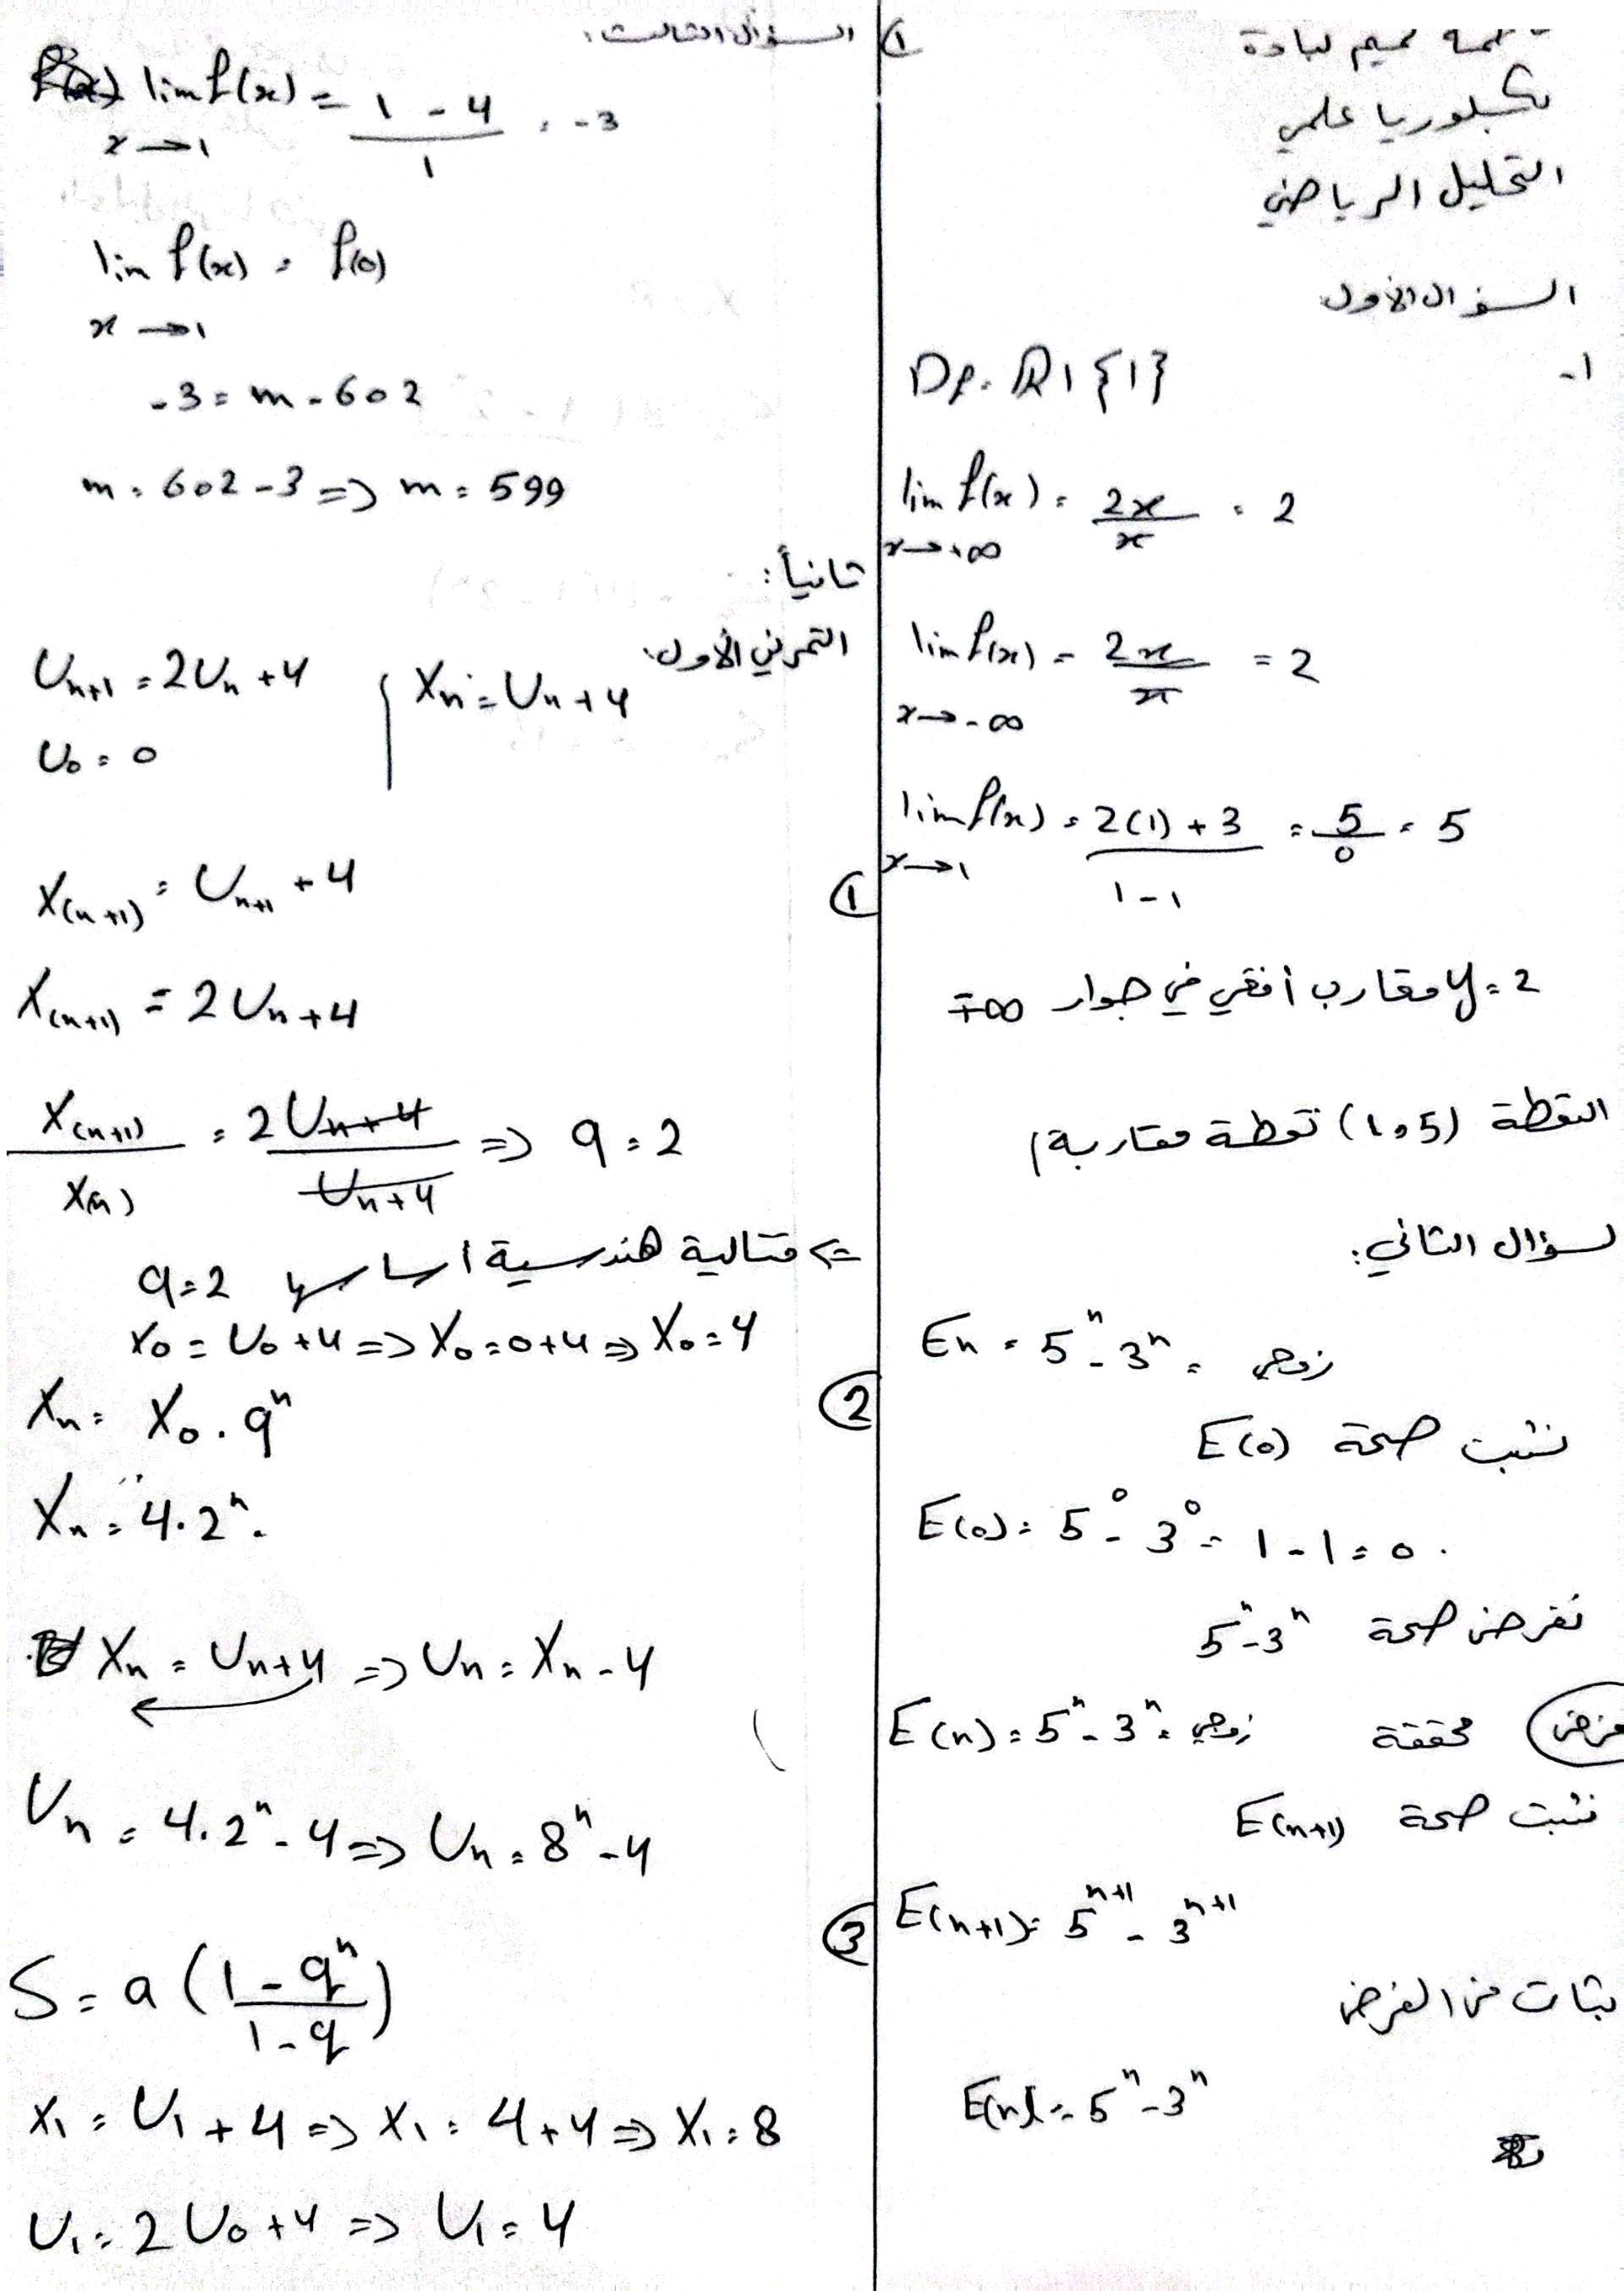 لبادة
بكلوريا علمي
التحليل الرياضي
السؤال الأول
1-
Df = R \ {1}
lim f(x) = 2x/x = 2
x→+∞
lim f(x) = 2x/x = 2
x→-∞
lim f(x) = 2(1)+3 / 1-1 = 5/0 = 5
x→1
y = 2 مقارب أفقي في جوار ∓∞
النقطة (1,5) نقطة مقاربة
لسؤال الثاني:
En = 5ⁿ - 3ⁿ = زوجي
نثبت صحة E(0)
E(0) = 5⁰ - 3⁰ = 1 - 1 = 0.
نفرض صحة 5ⁿ - 3ⁿ
E(n) = 5ⁿ - 3ⁿ = زوجي محققة فرض
نثبت صحة E(n+1)
E(n+1) = 5ⁿ⁺¹ - 3ⁿ⁺¹
من الفرض
E(n) = 5ⁿ - 3ⁿ
السؤال الثالث: ①
lim f(x) = 1-4 / 1 = -3
x→1
lim f(x) = f(0)
x→1
-3 = m - 602
m = 602 - 3 => m = 599
ثانياً:
التمرين الأول
Un+1 = 2Un + 4 | Xn = Un + 4
U0 = 0
①
X(n+1) = Un+1 + 4
X(n+1) = 2Un + 4
X(n+1) / X(n) = 2Un+4 / Un+4 => q = 2
=> متالية هندسية اساسها q = 2
X0 = U0 + 4 => X0 = 0+4 => X0 = 4
②
Xn = X0 . qⁿ
Xn = 4.2ⁿ.
Xn = Un+4 => Un = Xn - 4
Un = 4.2ⁿ - 4 => Un = 8ⁿ - 4
③
S = a (1 - qⁿ / 1 - q)
X1 = U1 + 4 => X1 = 4+4 => X1 = 8
U1 = 2U0 + 4 => U1 = 4